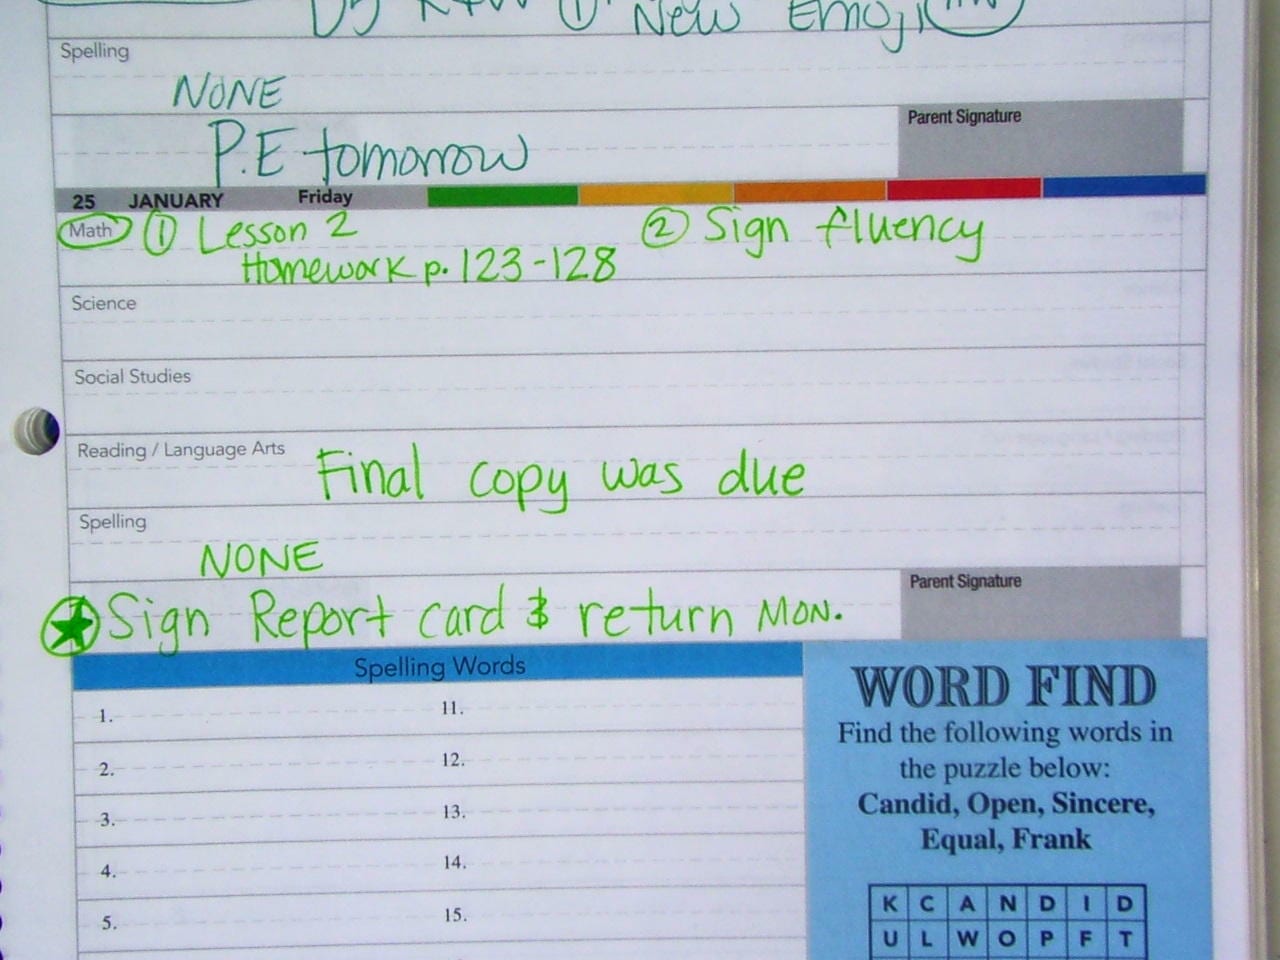 New Emoji
Spelling
NONE
P.E tomorrow
Parent Signature
25 JANUARY Friday
Math ① Lesson 2 ② Sign fluency
Homework p. 123-128
Science
Social Studies
Reading / Language Arts
Final copy was due
Spelling
NONE
Parent Signature
★ Sign Report card & return MON.
Spelling Words
1. 11.
2. 12.
3. 13.
4. 14.
5. 15.
WORD FIND
Find the following words in
the puzzle below:
Candid, Open, Sincere,
Equal, Frank
K C A N D I D
U L W O P F T